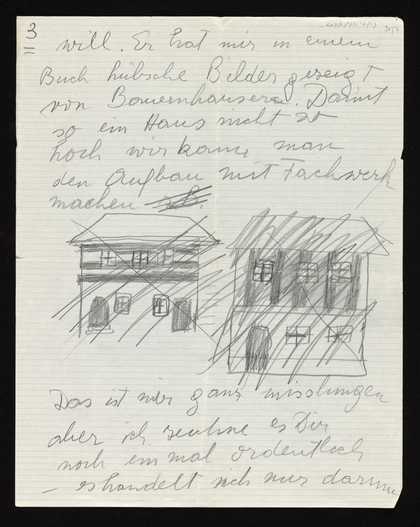 3
will. Er hat mir in einem
Buch hübsche Bilder gezeigt
von Bauernhäusern. Damit
so ein Haus nicht so
hoch wirkt, kann man
den Aufbau mit Fachwerk
machen
Das ist mir ganz misslungen
aber ich zeichne es Dir
noch einmal ordentlich
– es handelt sich nur darum